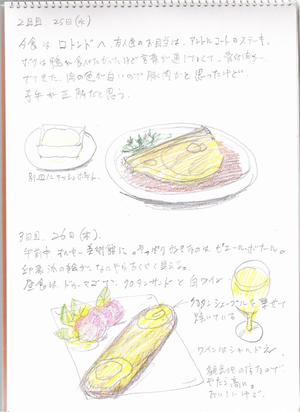 2日目、25日(水)
夕食は ロトンドへ。友人のお目当ては、アントルコートのステーキ。
ボクは鴨が食べたかったけど言葉が通じなくて、
でてきた。肉の色が白いので豚肉かと思ったけど
子牛が正解だと思う。
別皿にマッシュポテト。
3日目、26日(木)。
午前中 オルセー美術館に。やっぱり好きなのは ピエール・ボナール。
印象派の絵が、なにやら古くさく見える。
昼食は ドゥ・マゴで、クロタンサンドと 白ワイン
クロタンシェーブルを乗せて
焼いている
ワインはシャルドネ。
観光地の値段なので
やたら高い。
おいしいけど。